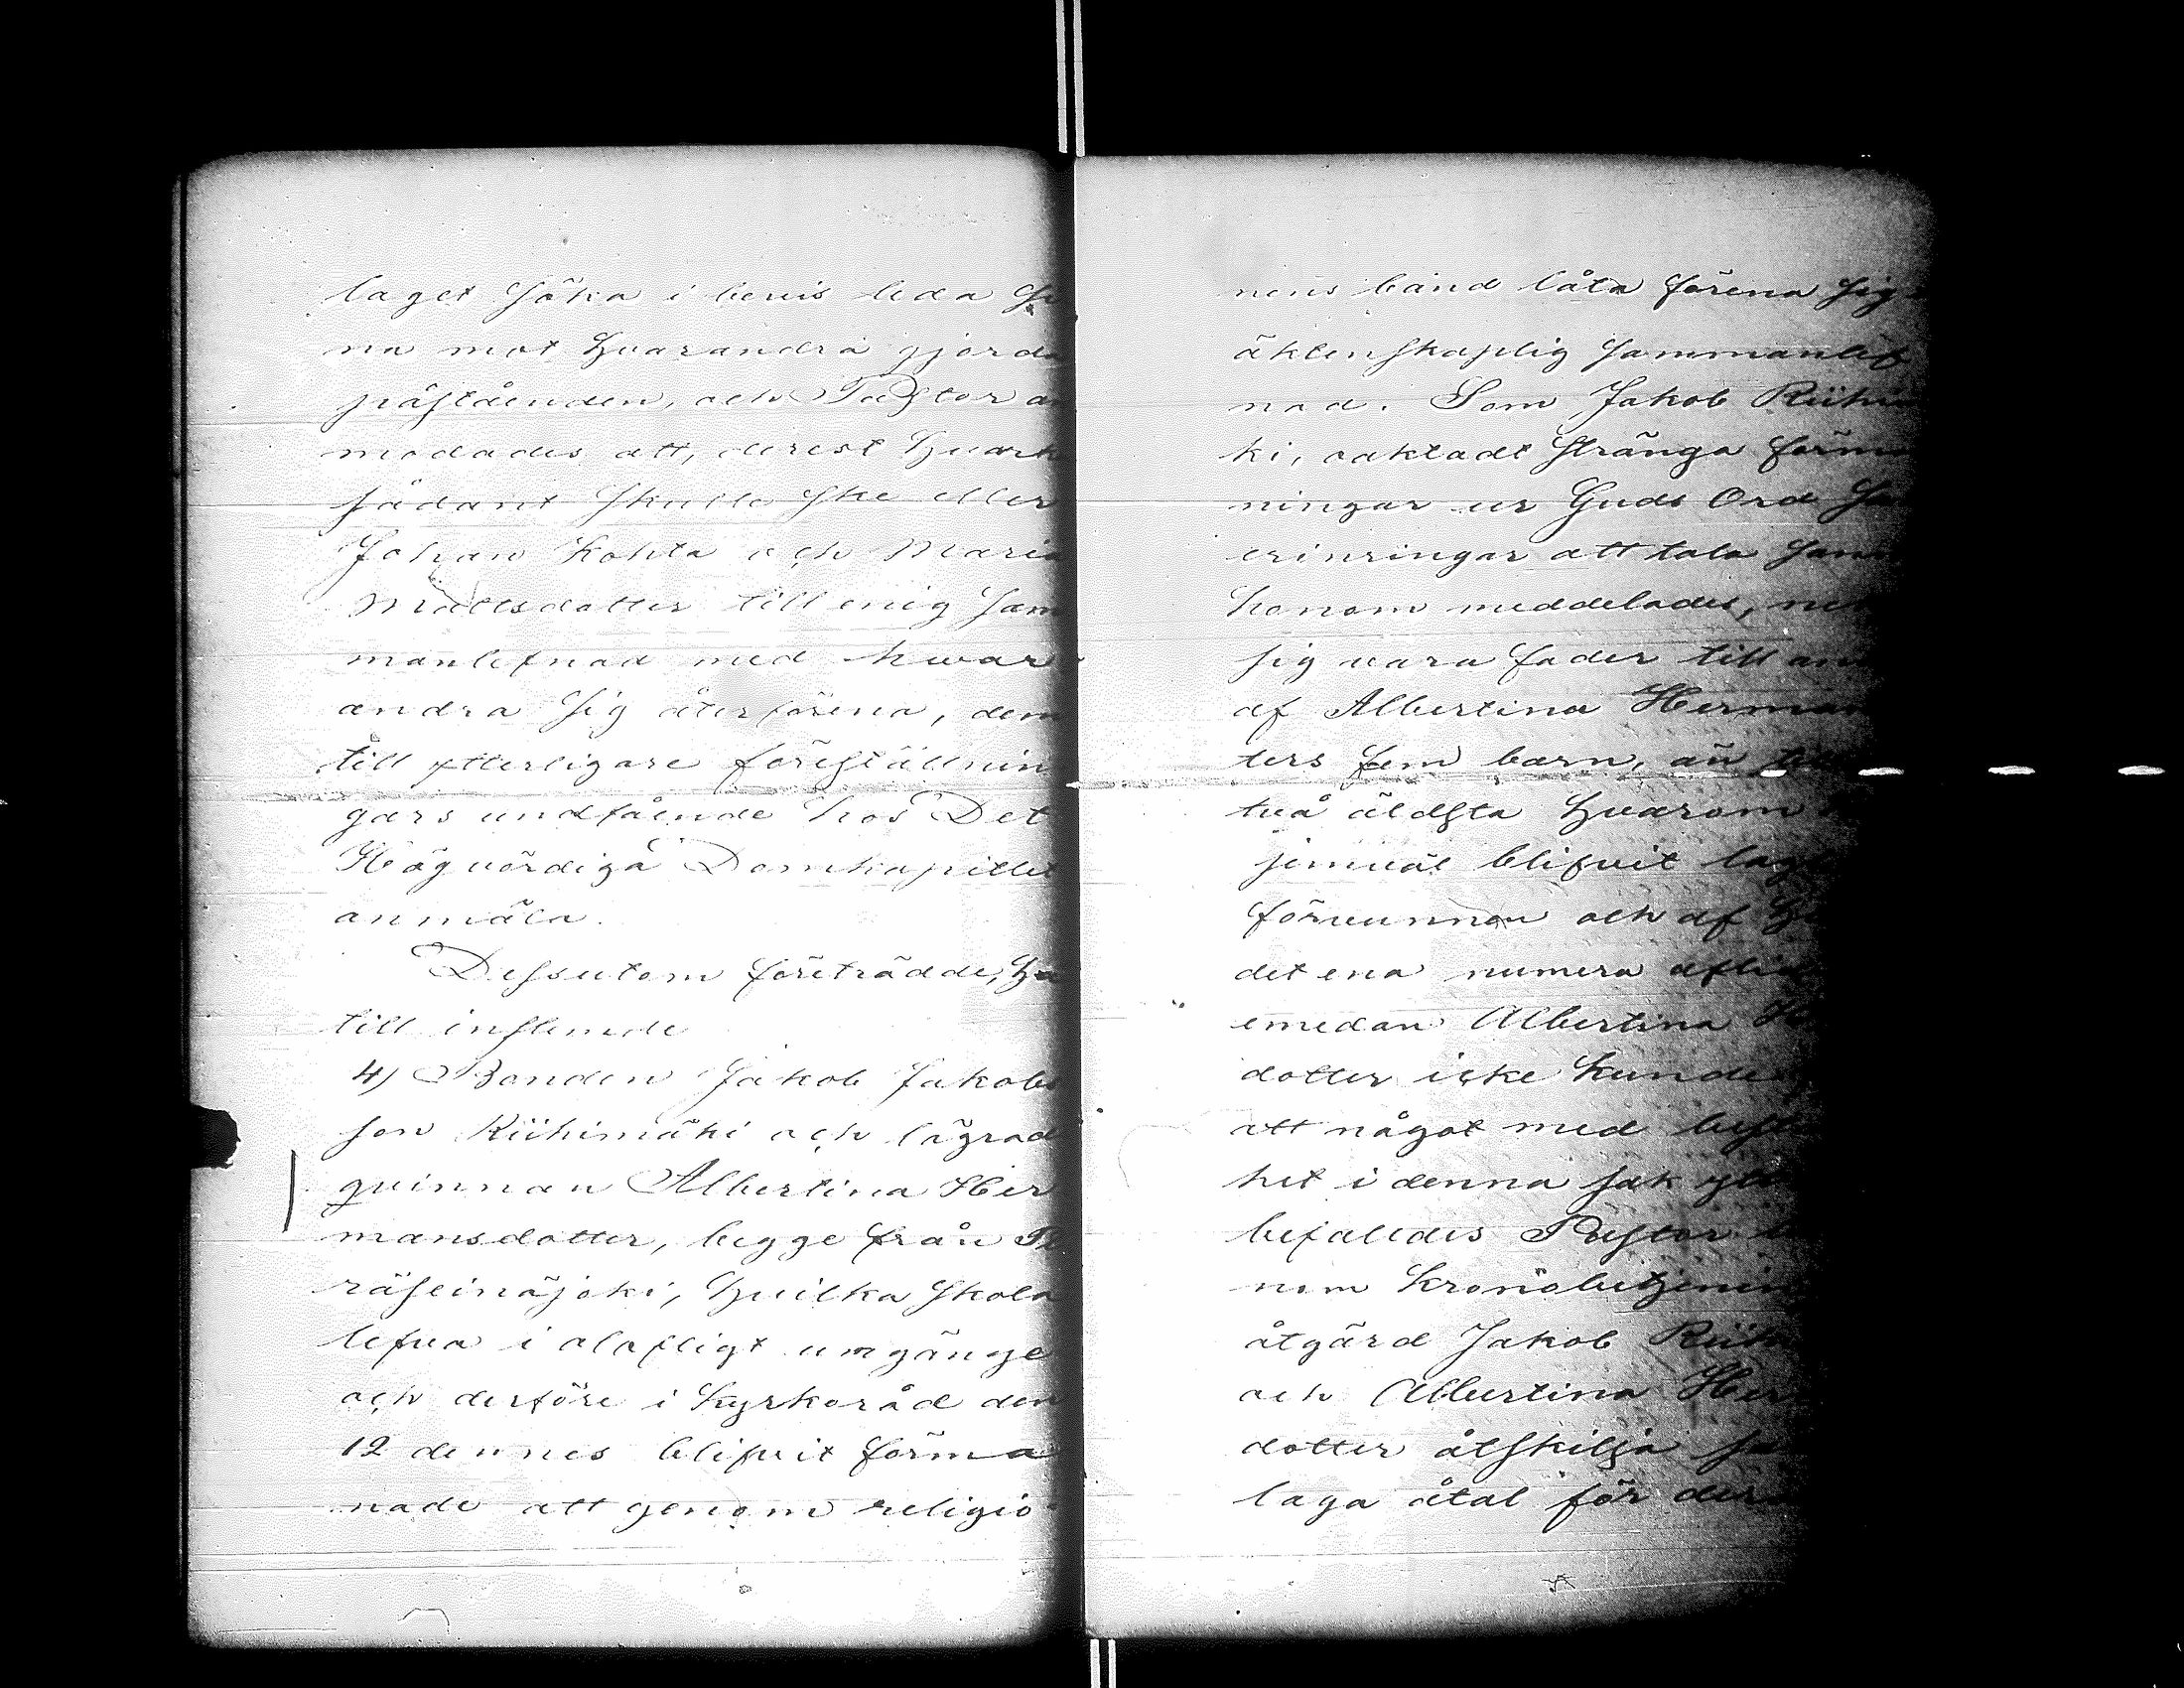 laget söka i bevis leda si
na mot hvarandra gjorda
påståenden, och Pastor an
modades att, derest hvark
sådant skulle ske eller
Johan Kohta och Maria
Mattsdotter till enig sam
manlefnad med hwar
andra sig återförena, dem
till ytterligare föreställnin
gars undfående hos Det
Högvördiga Domkapitlet
anmäla.
Dessutom företrädde, ha
till instemde
4) Bonden Jakob Jakobs
son Riihimäki och lägrad
qvinnan Albertina Her
mansdotter, begge från Pe
räseinäjoki, hvilka skola
lefva i olofligt umgänge
och derföre i kyrkoråd den
12 dennes blifvit förma
nade att genom religio
nens band låta förena sig
äktenskaplig sammanlef
nad. Som Jakob Riihi
ki, oaktadt stränga förma
ningar ur Guds Ord sa
erinringar att tala sann
honom meddelades, ne
sig vara fader till an
af Albertina Herman
ters fem barn, än till
två äldsta hvarom
jemväl blifvit lag
förvunnen och af h
det ena numera aflid
emedan Albertina He
dotter icke kunde
att något med best
het i denna sak
befalldes Pastor
nom kronobetjenin
åtgärd Jakob Riih
och Albertina Her
dotter åtskilja sa
laga åtal för der